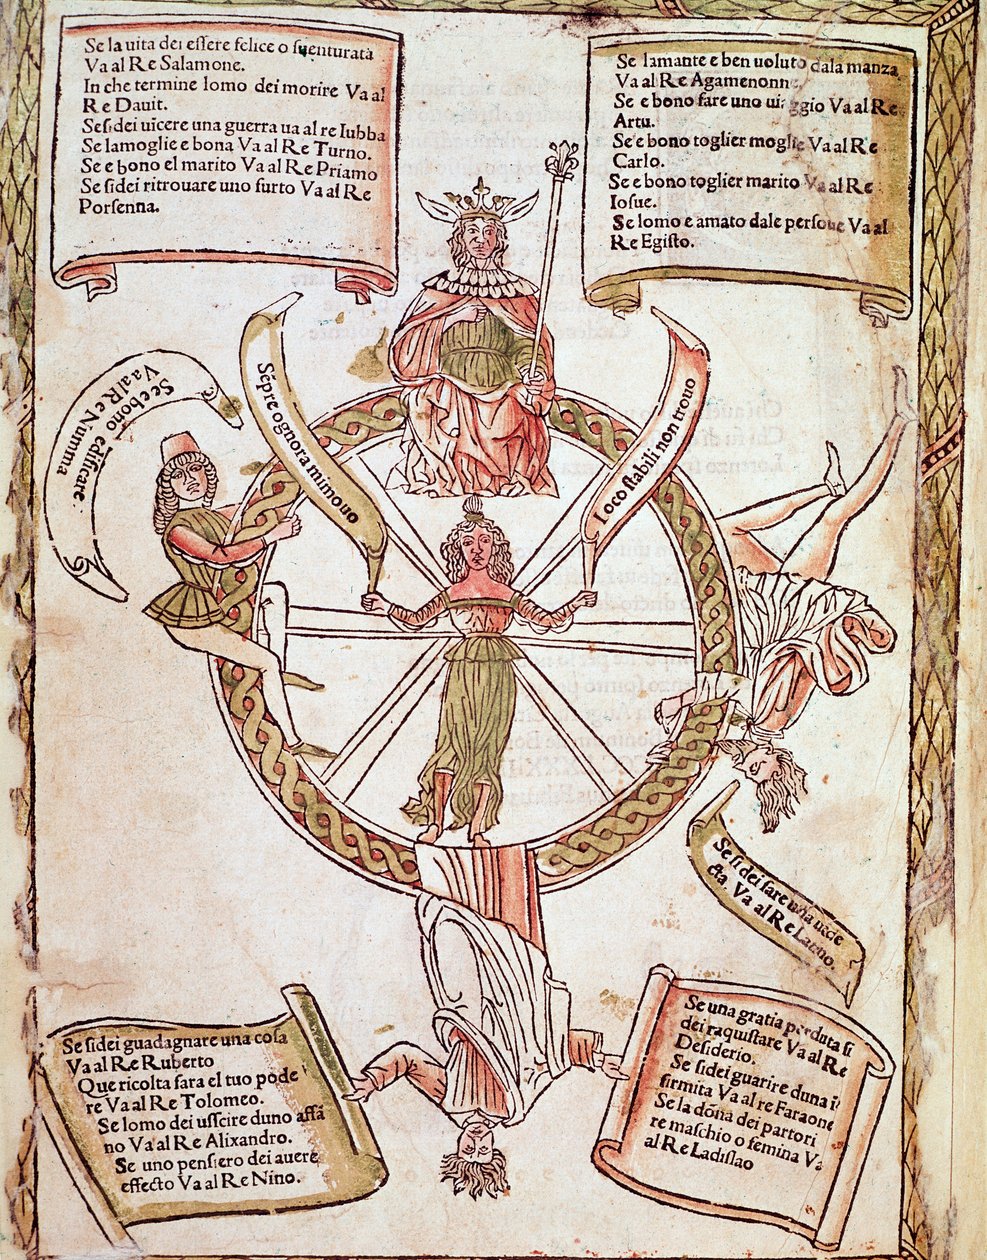 Se la uita dei essere felice o suenturata
Va al Re Salamone.
In che termine lomo dei morire Va al
Re Dauit.
Se si dei uicere una guerra ua al re Iubba
Se la moglie e bona Va al Re Turno.
Se e bono el marito Va al Re Priamo
Se si dei ritrouare uno furto Va al Re
Porsenna.
Se lamante e ben uoluto dala manza
Va al Re Agamenonne
Se e bono fare uno uiaggio Va al Re
Artu.
Se e bono toglier moglie Va al Re
Carlo.
Se e bono toglier marito Va al Re
Iosue.
Se lomo e amato dale persone Va al
Re Egisto.
Se e bono edificare
Va al Re Numma
Sēpre ognora mi mouo
Loco stabili non trouo
Se si dei fare una uide
cta. Va al Re Latino.
Se si dei guadagnare una cosa
Va al Re Ruberto
Que ricolta fara el tuo pode
re Va al Re Tolomeo.
Se lomo dei uscire duno affā
no Va al Re Alixandro.
Se uno pensiero dei auere
effecto Va al Re Nino.
Se una gratia perduta si
dei raquistare Va al Re
Desiderio.
Se si dei guarire duna ī
firmita Va al re Faraone
Se la dōna dei partori
re maschio o femina Va
al Re Ladislao